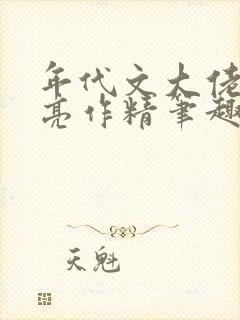 年代文大佬
亮作精笔趣
天魁